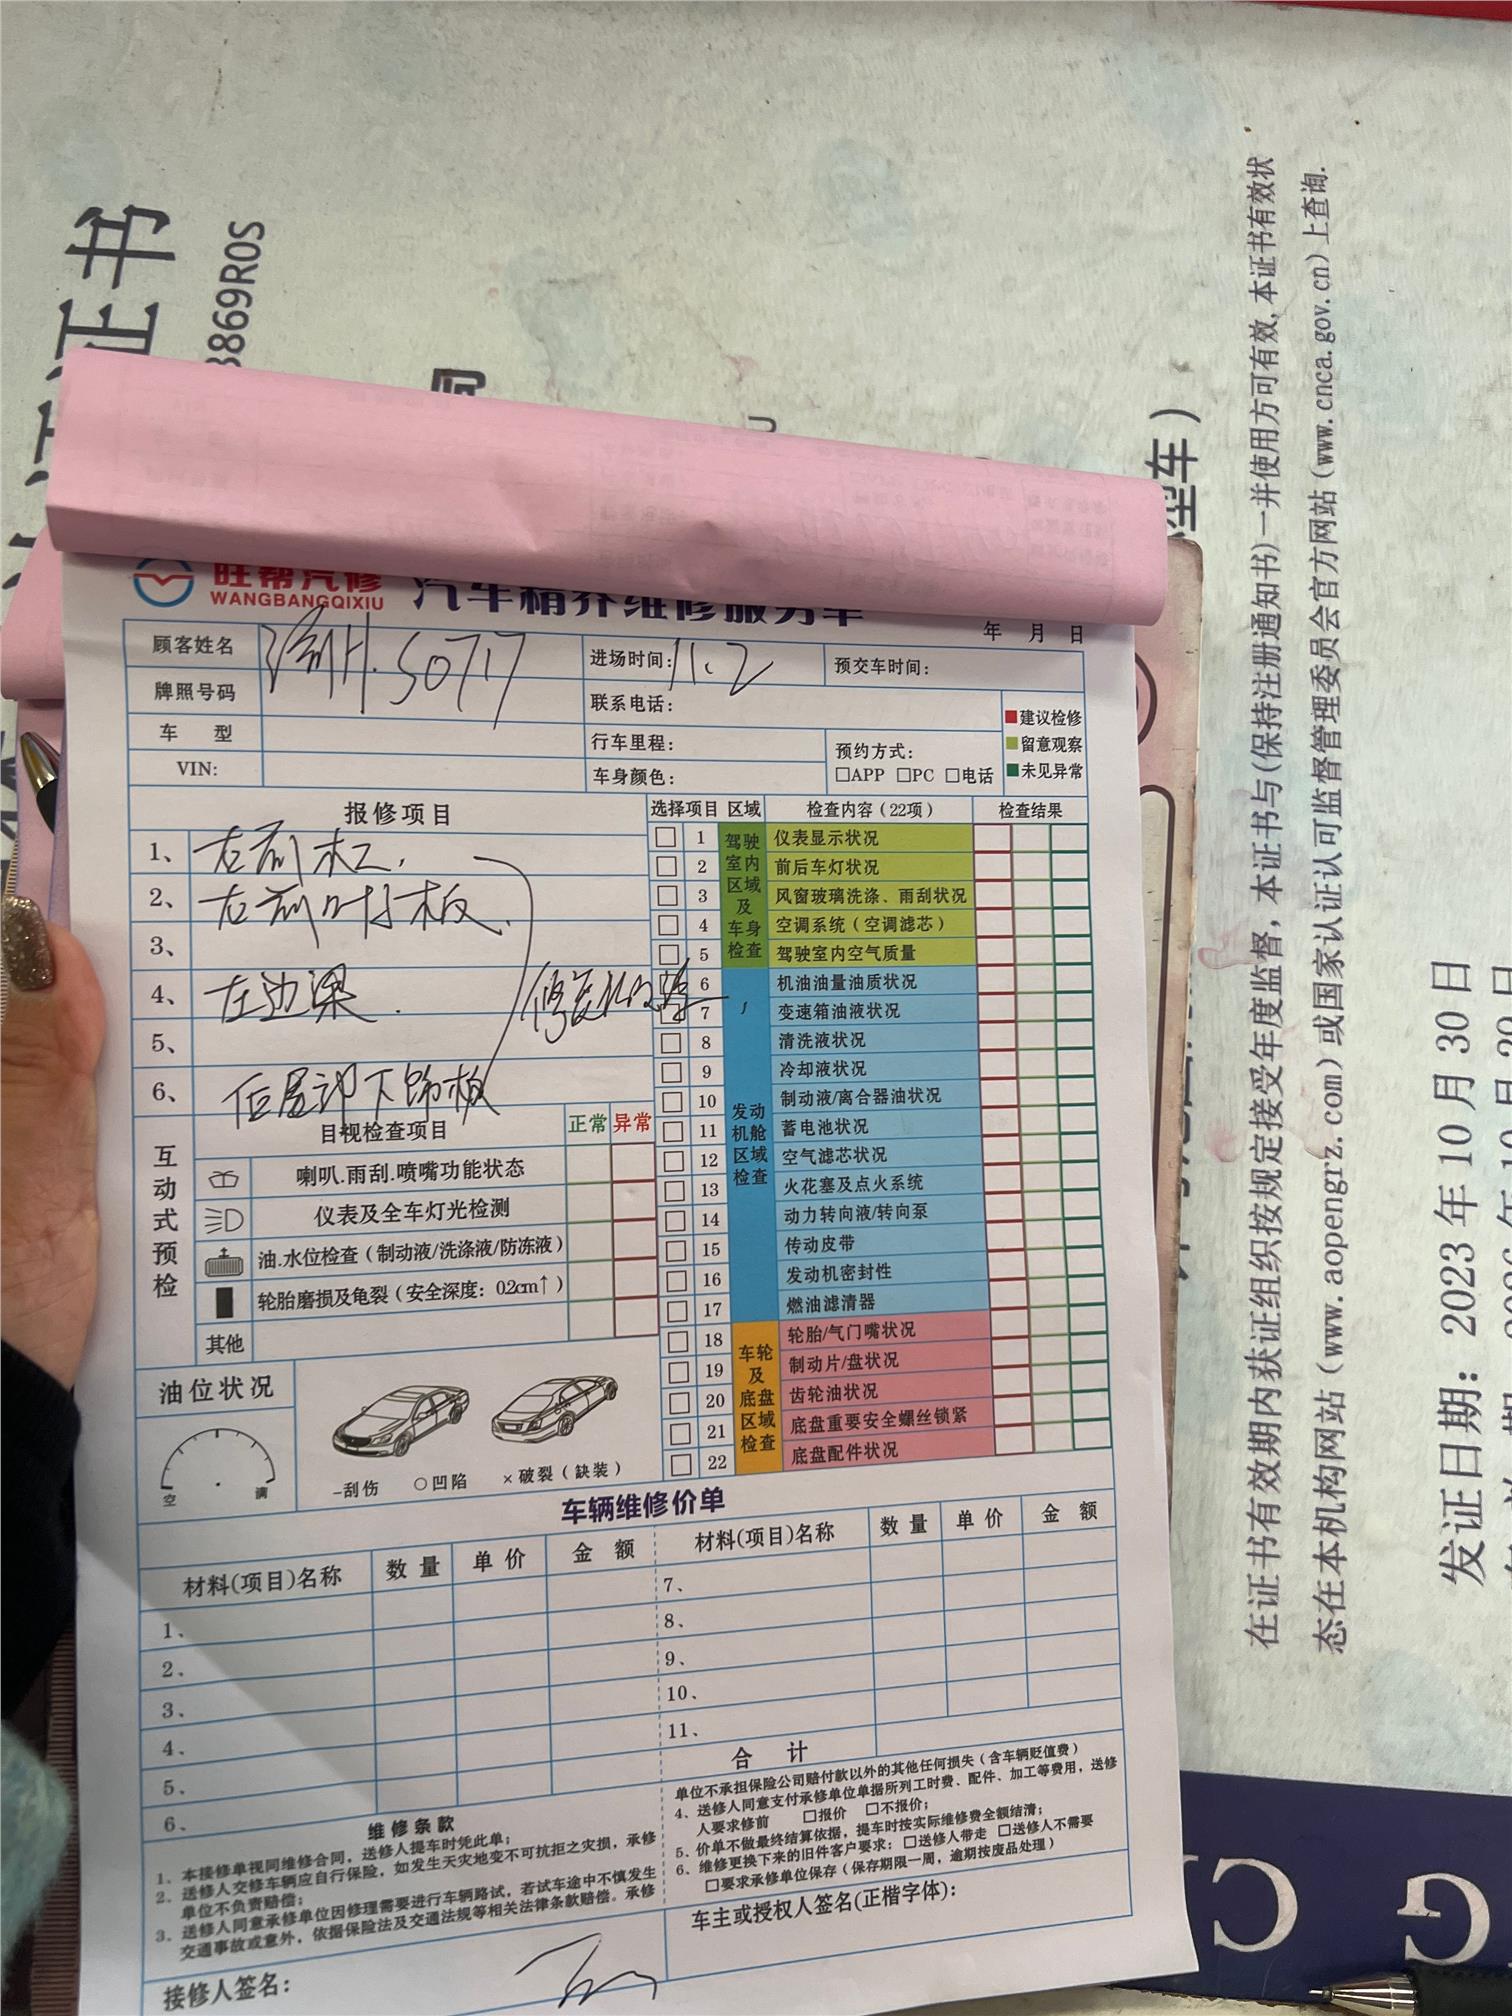 旺帮汽修
WANGBANGQIXIU
汽车精养维修服务单
年 月 日
顾客姓名
进场时间: 11.2
预交车时间:
牌照号码
5077
联系电话:
■建议检修
■留意观察
■未见异常
车 型
行车里程:
预约方式:
□APP □PC □电话
VIN:
车身颜色:
报修项目
1、 左前杠.
2、 左前叶子板.
3、
4、 左边梁.
5、
6、
下饰板
选择项目 区域 检查内容（22项） 检查结果
驾驶室内区域及车身检查
1 仪表显示状况
2 前后车灯状况
3 风窗玻璃洗涤、雨刮状况
4 空调系统（空调滤芯）
5 驾驶室内空气质量
发动机舱区域检查
6 机油油量油质状况
7 变速箱油液状况
8 清洗液状况
9 冷却液状况
10 制动液/离合器油状况
11 蓄电池状况
12 空气滤芯状况
13 火花塞及点火系统
14 动力转向液/转向泵
15 传动皮带
16 发动机密封性
17 燃油滤清器
车轮及底盘区域检查
18 轮胎/气门嘴状况
19 制动片/盘状况
20 齿轮油状况
21 底盘重要安全螺丝锁紧
22 底盘配件状况
互动式预检
目视检查项目 正常 异常
喇叭.雨刮.喷嘴功能状态
仪表及全车灯光检测
油.水位检查（制动液/洗涤液/防冻液）
轮胎磨损及龟裂（安全深度：0.2cm↑）
其他
油位状况
空 满
-刮伤 ○凹陷 ×破裂（缺装）
车辆维修价单
材料(项目)名称 数 量 单 价 金 额
材料(项目)名称 数 量 单 价 金 额
1、
2、
3、
4、
5、
6、
7、
8、
9、
10、
11、
合 计
维修条款
1、本接修单视同维修合同，送修人提车时凭此单；
2、送修人交修车辆应自行保险，如发生天灾地变不可抗拒之灾损，承修
单位不负责赔偿；
3、送修人同意承修单位因修理需要进行车辆路试，若试车途中不慎发生
交通事故或意外，依据保险法及交通法规等相关法律条款赔偿。承修
单位不承担保险公司赔付款以外的其他任何损失（含车辆贬值费）
4、送修人同意支付承修单位单据所列工时费、配件、加工等费用，送修
人要求修前 □报价 □不报价；
5、价单不做最终结算依据，提车时按实际维修费全额结清；
6、维修更换下来的旧件客户要求：□送修人带走 □送修人不需要
□要求承修单位保存（保存期限一周，逾期按废品处理）
接修人签名：
车主或授权人签名(正楷字体)：
证书
3869R0S
在证书有效期内获证组织按规定接受年度监督，本证书与(保持注册通知书)一并使用方可有效，本证书有效状
态在本机构网站（www.aopengrz.com）或国家认证认可监督管理委员会官方网站（www.cnca.gov.cn）上查询.
发证日期：2023 年 10 月 30 日